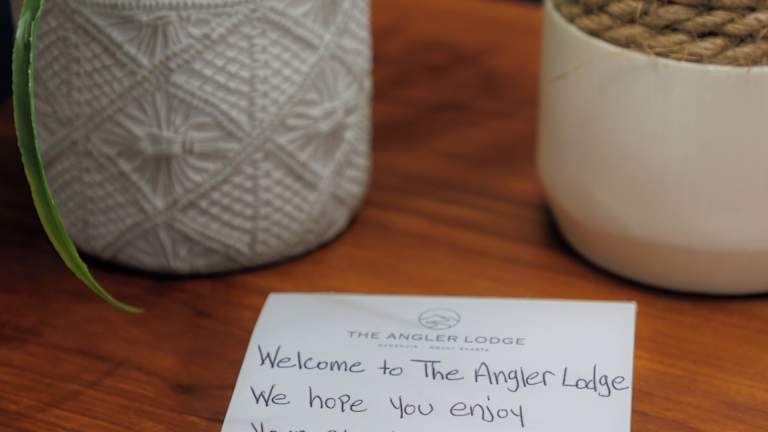 THE ANGLER LODGE
Welcome to The Angler Lodge
We hope you enjoy